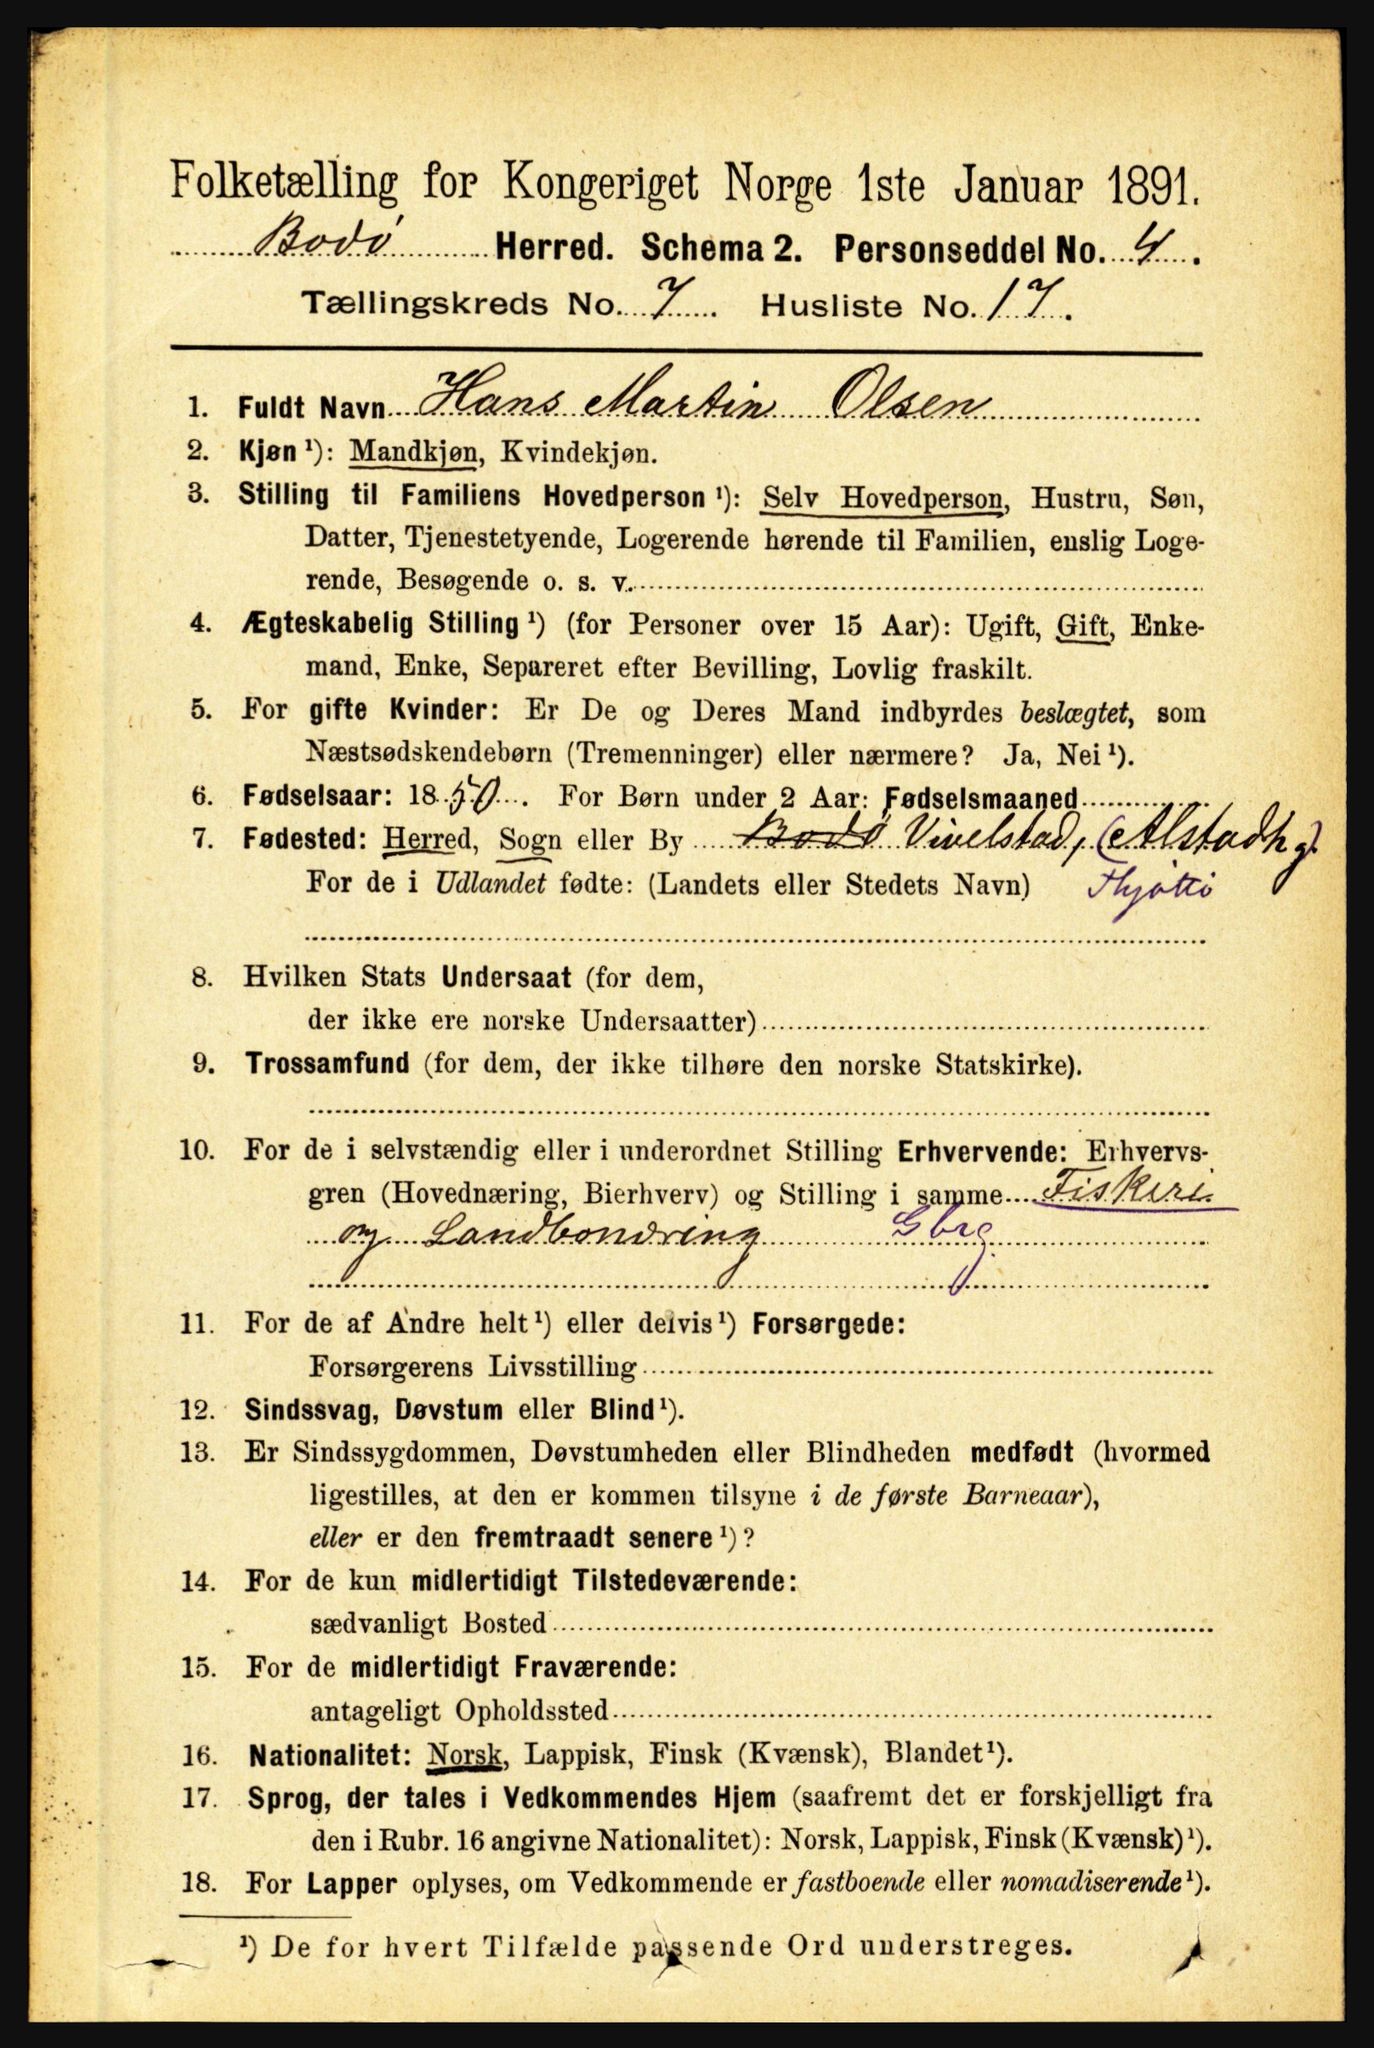 Folketælling for Kongeriget Norge 1ste Januar 1891.
Bodø Herred. Schema 2. Personseddel No. 4.
Tællingskreds No. 7. Husliste No. 17.
1. Fuldt Navn Hans Martin Olsen
2. Kjøn ¹): Mandkjøn, Kvindekjøn.
3. Stilling til Familiens Hovedperson ¹): Selv Hovedperson, Hustru, Søn,
Datter, Tjenestetyende, Logerende hørende til Familien, enslig Loge-
rende, Besøgende o. s. v.
4. Ægteskabelig Stilling ¹) (for Personer over 15 Aar): Ugift, Gift, Enke-
mand, Enke, Separeret efter Bevilling, Lovlig fraskilt.
5. For gifte Kvinder: Er De og Deres Mand indbyrdes beslægtet, som
Næstsødskendebørn (Tremenninger) eller nærmere? Ja, Nei ¹).
6. Fødselsaar: 1850. For Børn under 2 Aar: Fødselsmaaned
7. Fødested: Herred, Sogn eller By Bodø Vivelstad, (Alstadhg)
For de i Udlandet fødte: (Landets eller Stedets Navn) Thjøttø
8. Hvilken Stats Undersaat (for dem,
der ikke ere norske Undersaatter)
9. Trossamfund (for dem, der ikke tilhøre den norske Statskirke).
10. For de i selvstændig eller i underordnet Stilling Erhvervende: Erhvervs-
gren (Hovednæring, Bierhverv) og Stilling i samme Fiskeri
og Landbondring Gbrg
11. For de af Andre helt ¹) eller delvis ¹) Forsørgede:
Forsørgerens Livsstilling
12. Sindssvag, Døvstum eller Blind ¹).
13. Er Sindssygdommen, Døvstumheden eller Blindheden medfødt (hvormed
ligestilles, at den er kommen tilsyne i de første Barneaar),
eller er den fremtraadt senere ¹)?
14. For de kun midlertidigt Tilstedeværende:
sædvanligt Bosted
15. For de midlertidigt Fraværende:
antageligt Opholdssted
16. Nationalitet: Norsk, Lappisk, Finsk (Kvænsk), Blandet ¹).
17. Sprog, der tales i Vedkommendes Hjem (saafremt det er forskjelligt fra
den i Rubr. 16 angivne Nationalitet): Norsk, Lappisk, Finsk (Kvænsk) ¹).
18. For Lapper oplyses, om Vedkommende er fastboende eller nomadiserende ¹).
¹) De for hvert Tilfælde passende Ord understreges.